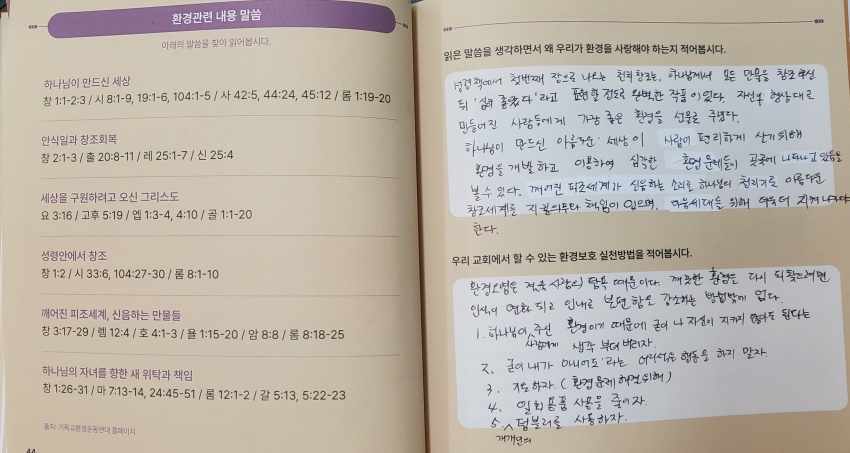 환경관련 내용 말씀
아래의 말씀을 찾아 읽어봅시다.
하나님이 만드신 세상
창 1:1-2:3 / 시 8:1-9, 19:1-6, 104:1-5 / 사 42:5, 44:24, 45:12 / 롬 1:19-20
안식일과 창조회복
창 2:1-3 / 출 20:8-11 / 레 25:1-7 / 신 25:4
세상을 구원하려고 오신 그리스도
요 3:16 / 고후 5:19 / 엡 1:3-4, 4:10 / 골 1:1-20
성령안에서 창조
창 1:2 / 시 33:6, 104:27-30 / 롬 8:1-10
깨어진 피조세계, 신음하는 만물들
창 3:17-29 / 렘 12:4 / 호 4:1-3 / 욜 1:15-20 / 암 8:8 / 롬 8:18-25
하나님의 자녀를 향한 새 위탁과 책임
창 1:26-31 / 마 7:13-14, 24:45-51 / 롬 12:1-2 / 갈 5:13, 5:22-23
출처: 기독교환경운동연대 홈페이지
44
읽은 말씀을 생각하면서 왜 우리가 환경을 사랑해야 하는지 적어봅시다.
성경책에서 첫번째 장으로 나오는 천지창조는, 하나님께서 모든 만물을 창조하신
뒤 '심히 좋았다'라고 표현할 정도로 완벽한 작품이었다. 자신의 형상대로
만들어진 사람들에게 가장 좋은 환경을 선물로 주셨다.
하나님이 만드신 아름다운 세상이 사람이 편리하게 살기 위해
환경을 개발하고 이용하여 심각한 환경문제들이 곳곳에 나타나고 있음을
볼 수 있다. 깨어진 피조세계가 신음하는 소리를 하나님의 청지기로 아름다운
창조세계를 지킬 의무와 책임이 있으며, 다음세대를 위해 더욱더 지켜나가야
한다.
우리 교회에서 할 수 있는 환경보호 실천방법을 적어봅시다.
환경오염은 결국 사람의 탐욕 때문이다. 깨끗한 환경을 다시 되찾으려면
인식이 변화되고 인내로 불편함을 감수하는 방법밖에 없다.
1. 하나님이 사람에게 주신 환경이기 때문에 굳이 나 자신이 지키지 않아도 된다는
생각부터 버리자.
2. '굳이 내가 아니어도'라는 어리석은 행동을 하지 말자.
3. 기도하자. (환경문제 해결위해)
4. 일회용품 사용을 줄이자.
5. 개개인의 텀블러를 사용하자.